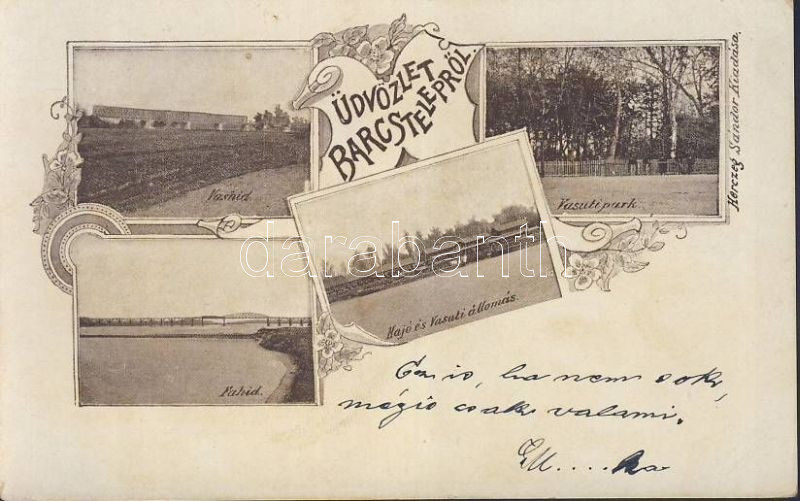 ÜDVÖZLET
BARCSTELEPRŐL.
Vashid.
Vasuti park.
Herczeg Sándor Kiadása.
darabanth.com
Hajó és Vasuti állomás.
Fahid.
Ez is, ha nem sok,
mégis csak valami.
Ell....ka